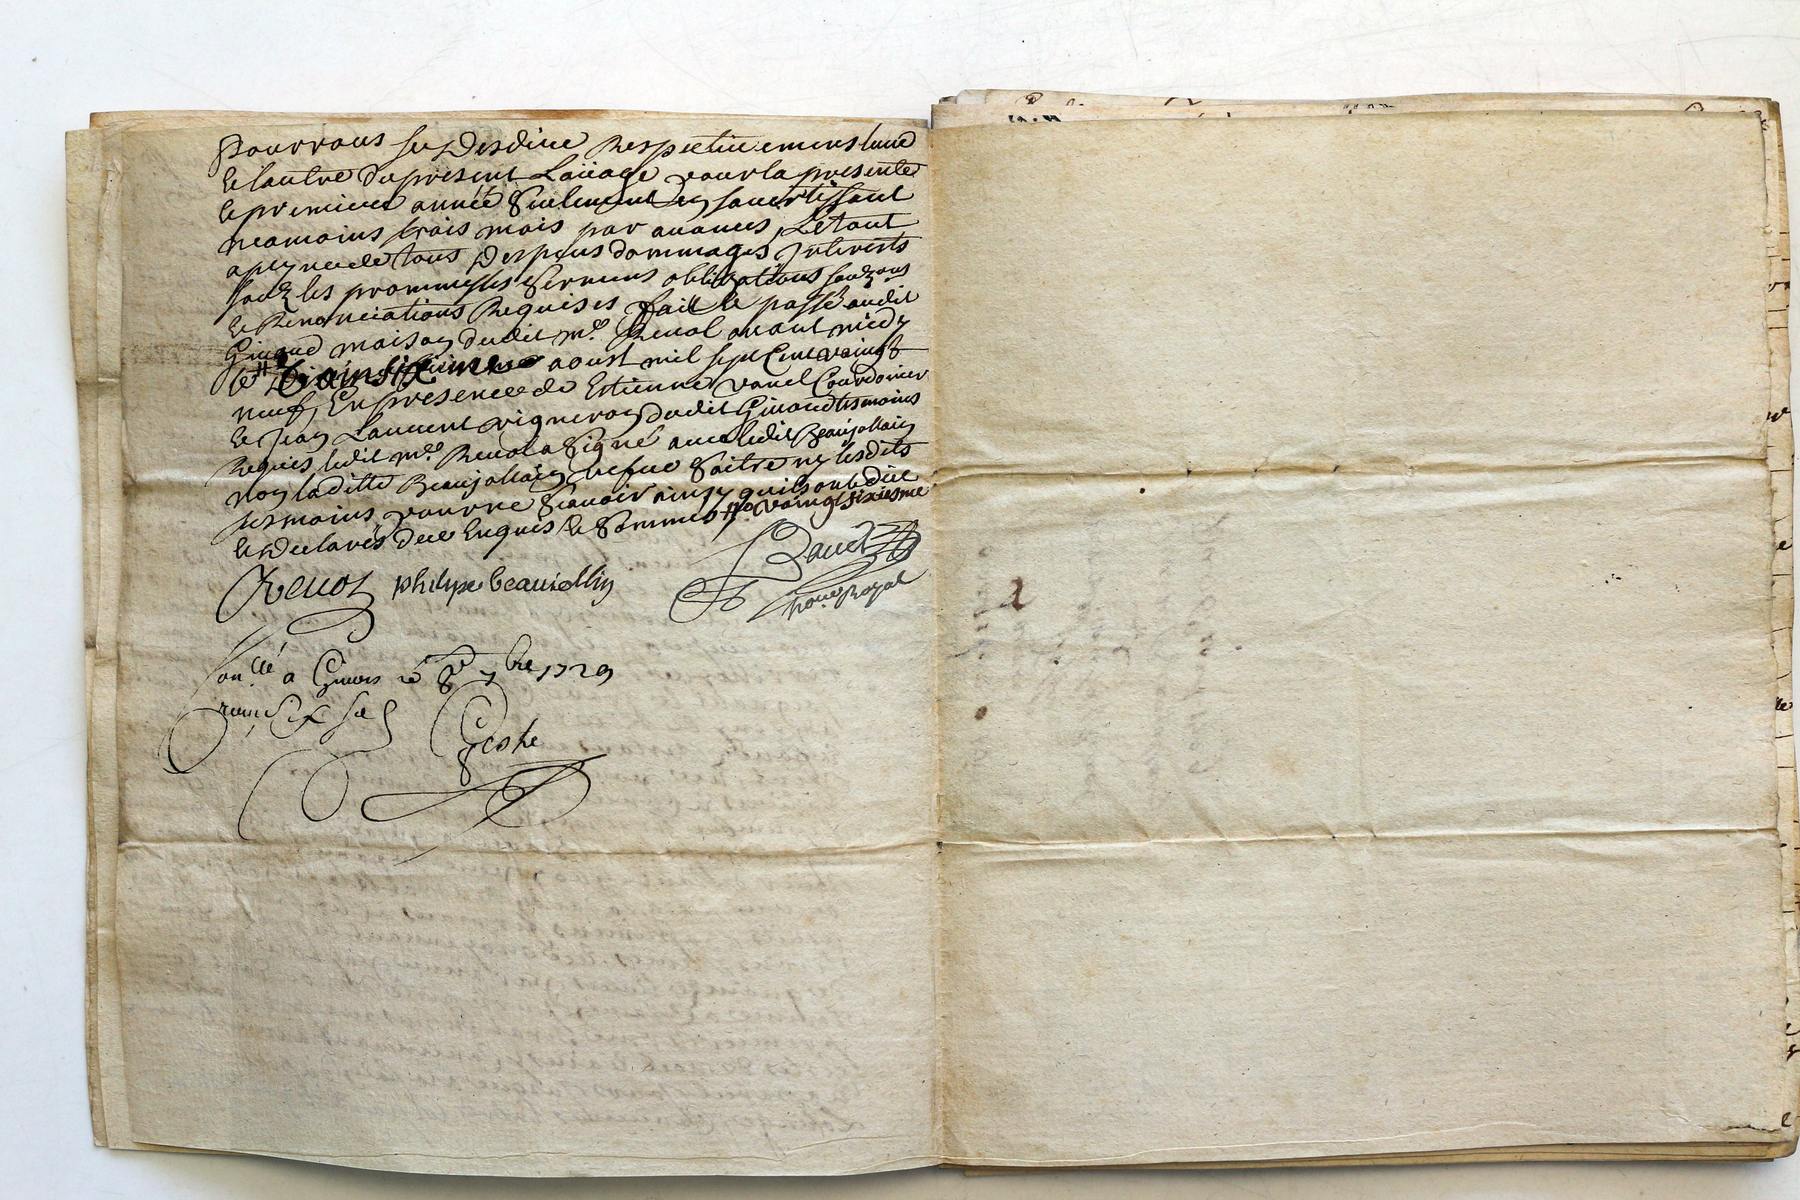 pourrons se Desdire Respectivement lune
& lautre du present Loüage pour la presente
& premiere année seulement En savertissant
neamoins trois mois par avances, Letout
apeyne de tous Despens dommages Interests
soubz les promesses serments obligations soubzons
& Renonciations Requises fait & passé audit
Givord maison dudit me. Revol avant midy
le # vainsixieme aoust mil sept Cent vaingt
neuf, En presence de Estienne vanel Courdonier
& Jean Laurent vigneron dudit Givord tesmoins
Requis ledit me. Revol a Signé avec ledit Beaujollain
non laditte Beaujollain befue Saitre ny lesdits
tesmoins pour ne Scavoir ainsy quils ont dit
& Declaré dece Enquis & Sommés # vaingt sixiesme
Revol philipe beauiollin
no.re Royal
Con.llé a Givors le 8e 7bre 1729